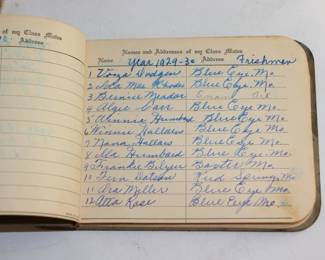 of my Class Mates
Address
Names and Addresses of my Class Mates
Name Year 1929-30 Address Freshmen
1 Voya Dodgen Blue Eye, Mo.
2 Iola Mae Rhodes Blue Eye, Mo.
3 Bernice Meador
4 Algie Carr Blue Eye, Mo.
5 Annie Hembard Blue Eye Mo.
6 Winnie Hallars Blue Eye, Mo.
7 Nana Hallars Blue Eye, Mo.
8 Ida Hembard Blue Eye, Mo.
9 Frankie Bilyeu Baxter Mo.
10 Fern Dotson Reed Spring, Mo.
11 Ora Miller Blue Eye Mo.
12 Atta Rose Blue Eye Mo.